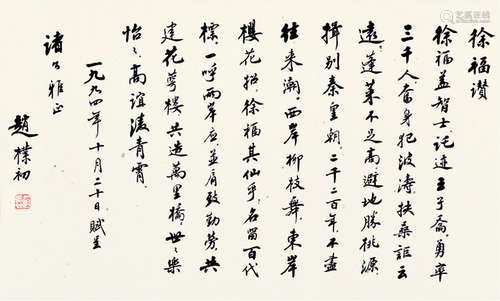 徐福讚
徐福蓋智士託迹王子喬勇率
三千人奮身犯波濤扶桑詎云
遠蓬萊不足高避地勝桃源
揖别秦皇朝二千二百年不盡
往來潮西岸柳枝舞東岸
櫻花招徐福其仙乎名留百代
標一呼兩岸應並肩致勤勞共
建花萼樓共造萬里橋世〻樂
怡〻高誼淩青霄
一九九四年十月二十日賦呈
諸公雅正
趙樸初